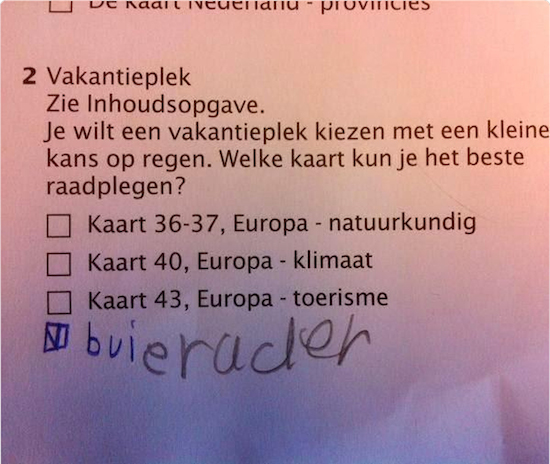 De kaart Nederland - provincies
2 Vakantieplek
Zie Inhoudsopgave.
Je wilt een vakantieplek kiezen met een kleine
kans op regen. Welke kaart kun je het beste
raadplegen?
Kaart 36-37, Europa - natuurkundig
Kaart 40, Europa - klimaat
Kaart 43, Europa - toerisme
buierader